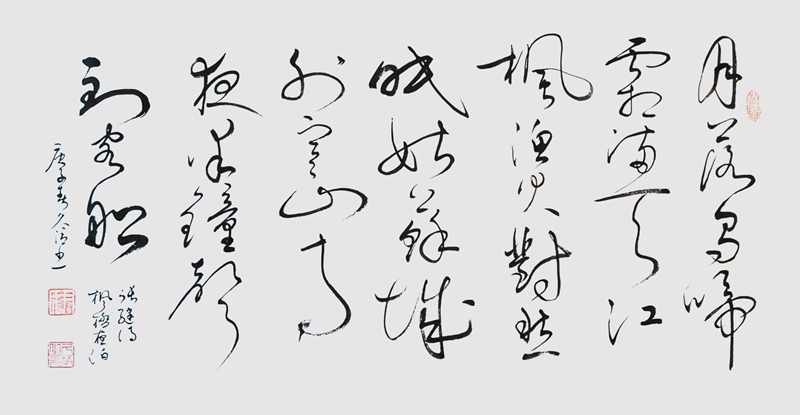 月落烏啼
霜滿天江
楓漁火對愁
眠姑蘇城
外寒山寺
夜半鐘聲
到客船
張繼詩
楓橋夜泊
庚子春